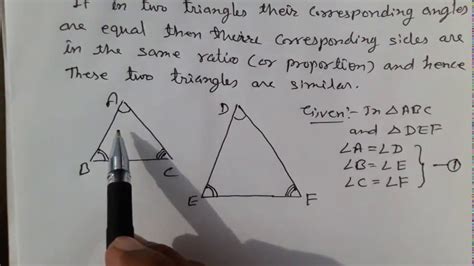 If in two triangles their corresponding angles
are equal then their corresponding sides are
in the same ratio (or proportion) and hence
These two triangles are similar.
A
B
C
D
E
F
Given:- In △ABC
and △DEF
∠A = ∠D
∠B = ∠E
∠C = ∠F
①